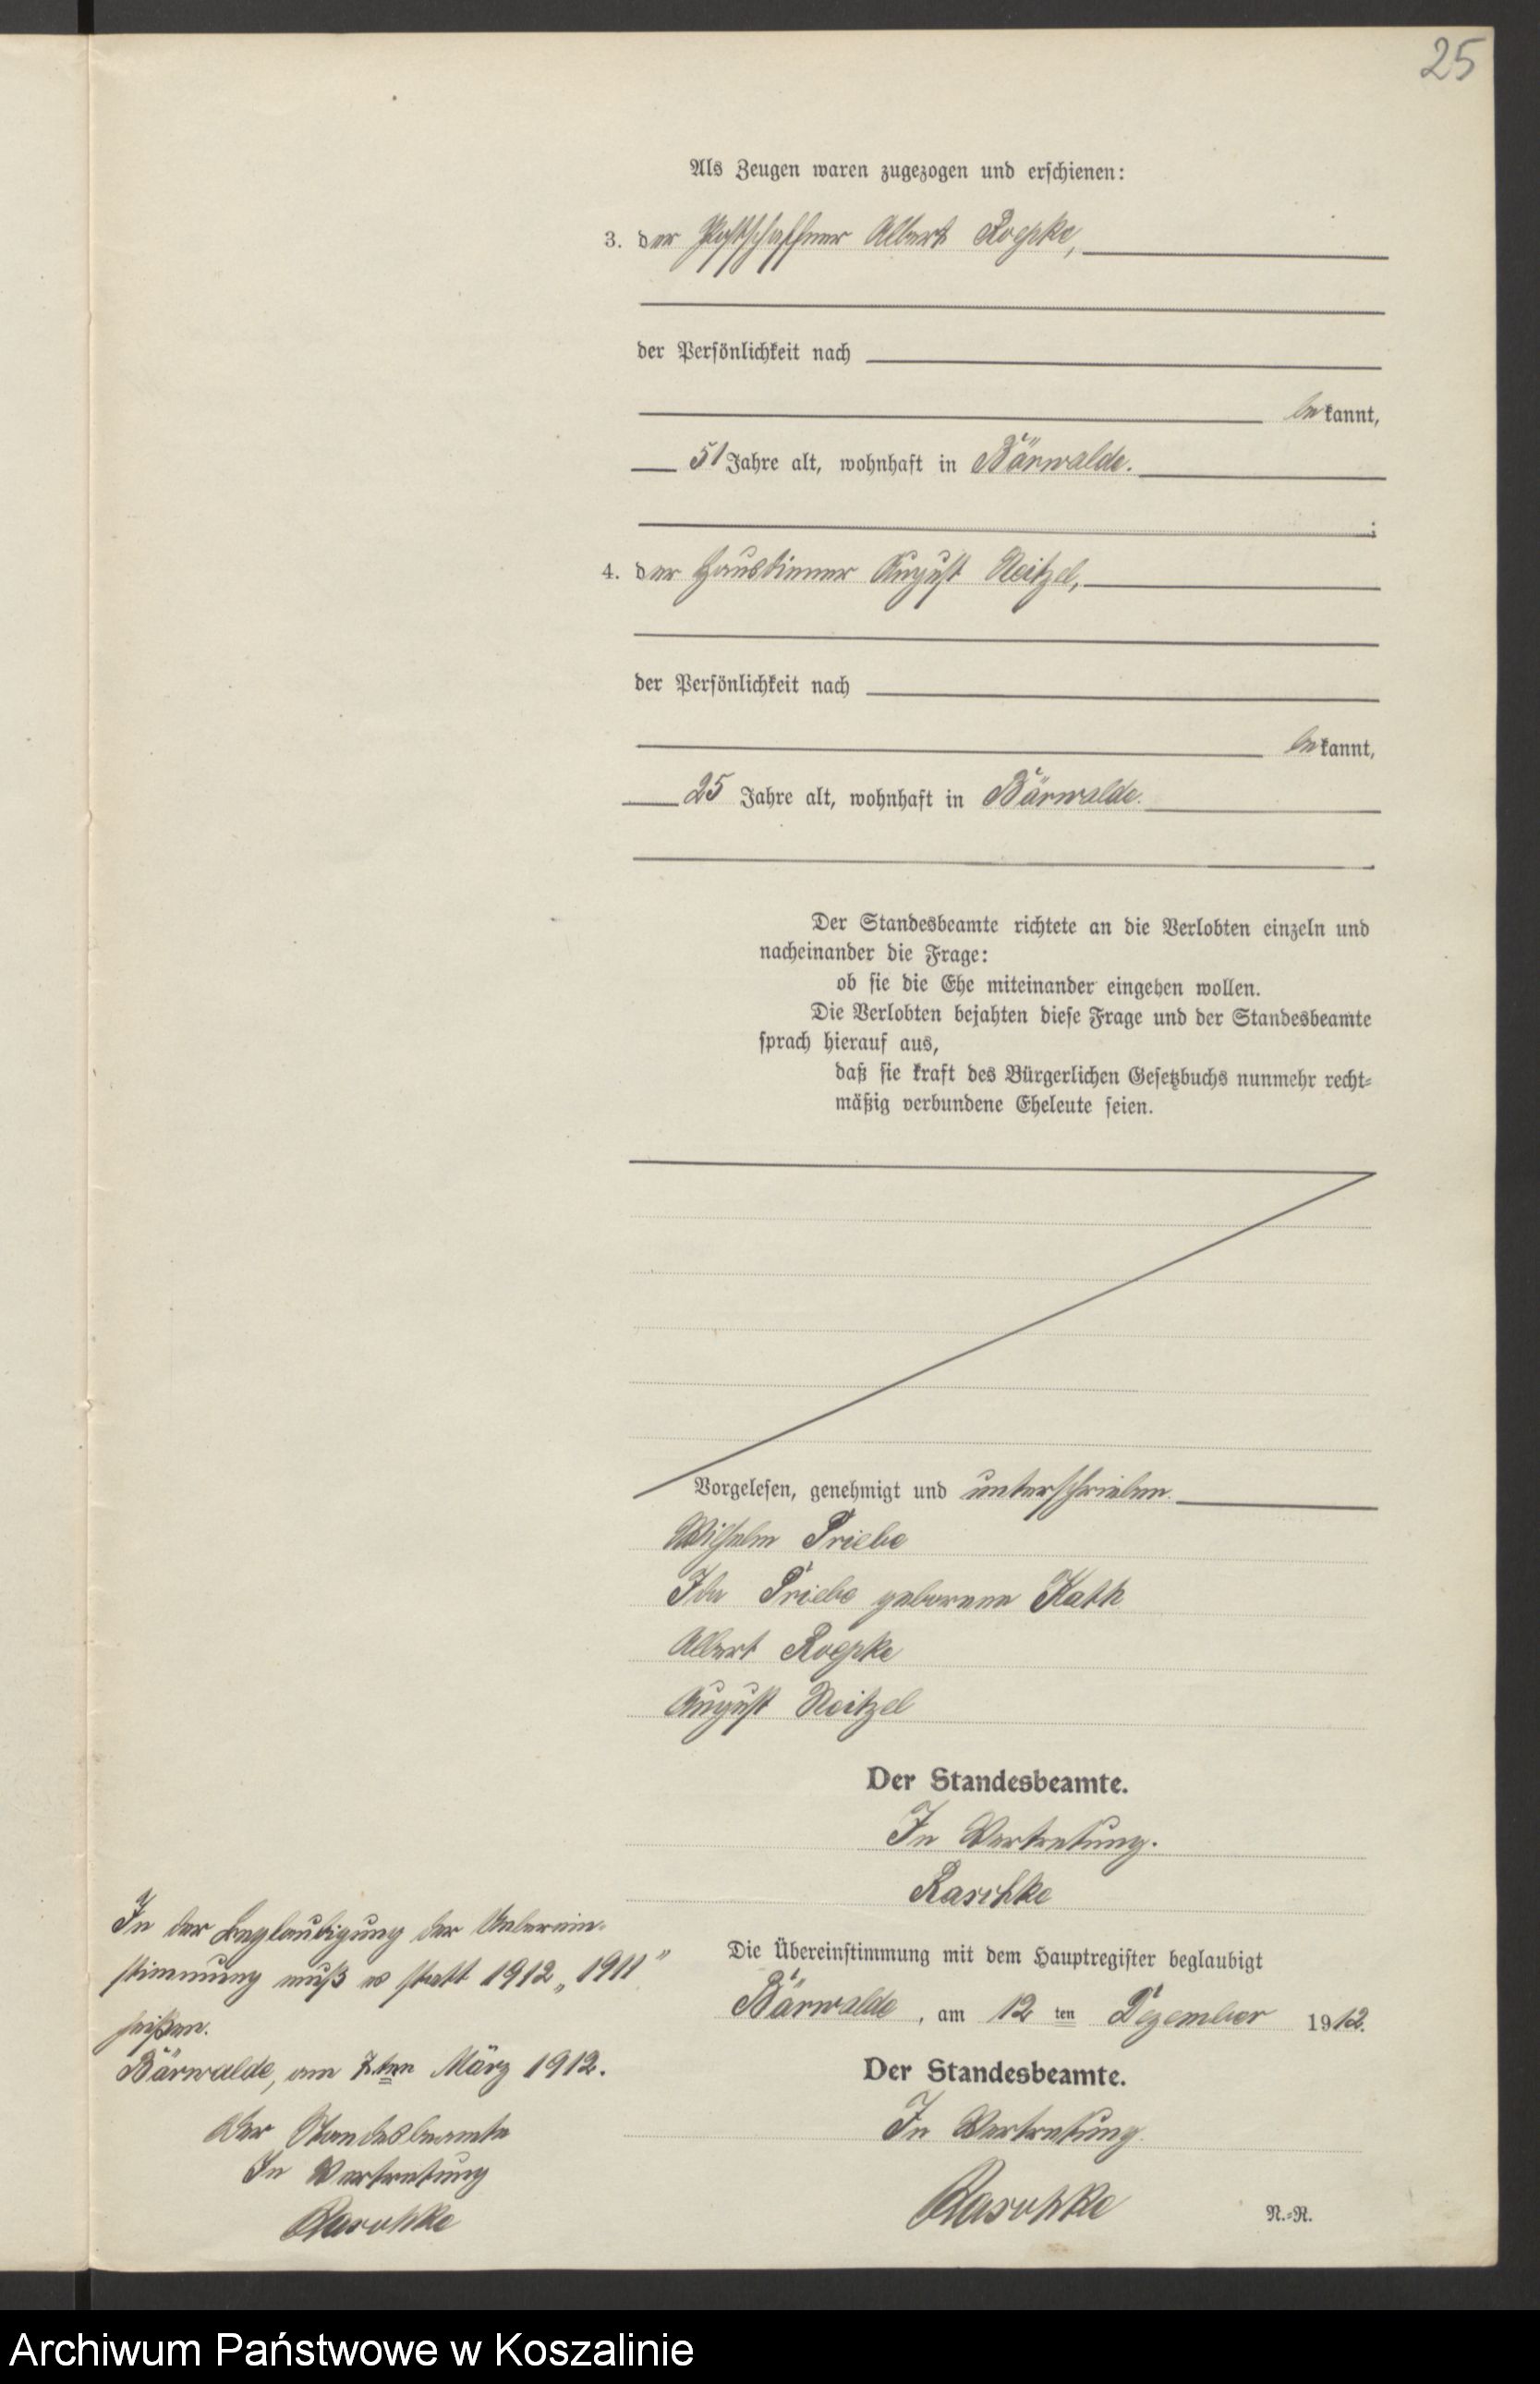 25
Als Zeugen waren zugezogen und erschienen:
3. der Postschaffner Albert Roepke,
der Persönlichkeit nach
bekannt,
51 Jahre alt, wohnhaft in Bärwalde.
;
4. der Hausdiener August Neitzel,
der Persönlichkeit nach
bekannt,
25 Jahre alt, wohnhaft in Bärwalde.
Der Standesbeamte richtete an die Verlobten einzeln und
nacheinander die Frage:
ob sie die Ehe miteinander eingehen wollen.
Die Verlobten bejahten diese Frage und der Standesbeamte
sprach hierauf aus,
daß sie kraft des Bürgerlichen Gesetzbuchs nunmehr recht-
mäßig verbundene Eheleute seien.
Vorgelesen, genehmigt und unterschrieben.
Wilhelm Priebe
Ida Priebe geborene Kath
Albert Roepke
August Neitzel
Der Standesbeamte.
In Vertretung.
Raschke
Die Übereinstimmung mit dem Hauptregister beglaubigt
Bärwalde, am 12 ten Dezember 1912.
Der Standesbeamte.
In Vertretung.
Raschke
N.-R.
In der Beglaubigung der Ueberein-
stimmung muß es statt 1912 „1911"
heißen.
Bärwalde, am 7ten März 1912.
Der Standesbeamte
In Vertretung
Raschke
Archiwum Państwowe w Koszalinie